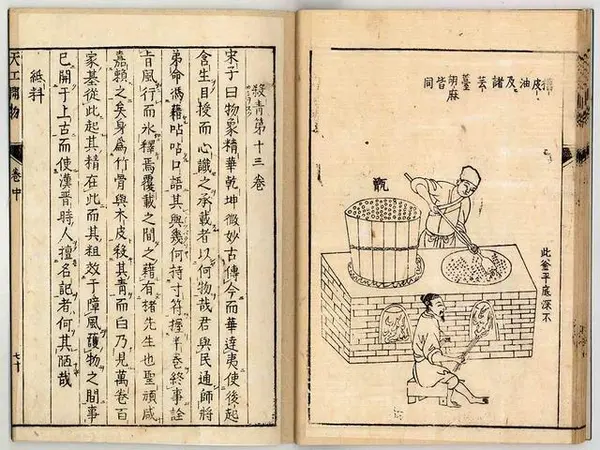 皮油及諸芸薹胡麻皆同
甑
此釜平底深不
殺青第十三卷
宋子曰物象精華乾坤微妙古傳今而華達夷使後起
含生目授而心識之承載者以何物哉君與民通師將
弟命馮藉呫呫口語其與幾何持寸符握半卷終事詮
旨風行而氷釋焉覆載之間之藉有楮先生也聖頑咸
嘉賴之矣身爲竹骨與木皮殺其青而白乃見萬卷百
家基從此起其精在此而其粗效于障風護物之間事
已開于上古而使漢晉時人擅名記者何其陋哉
紙料
天工開物
卷中
七十